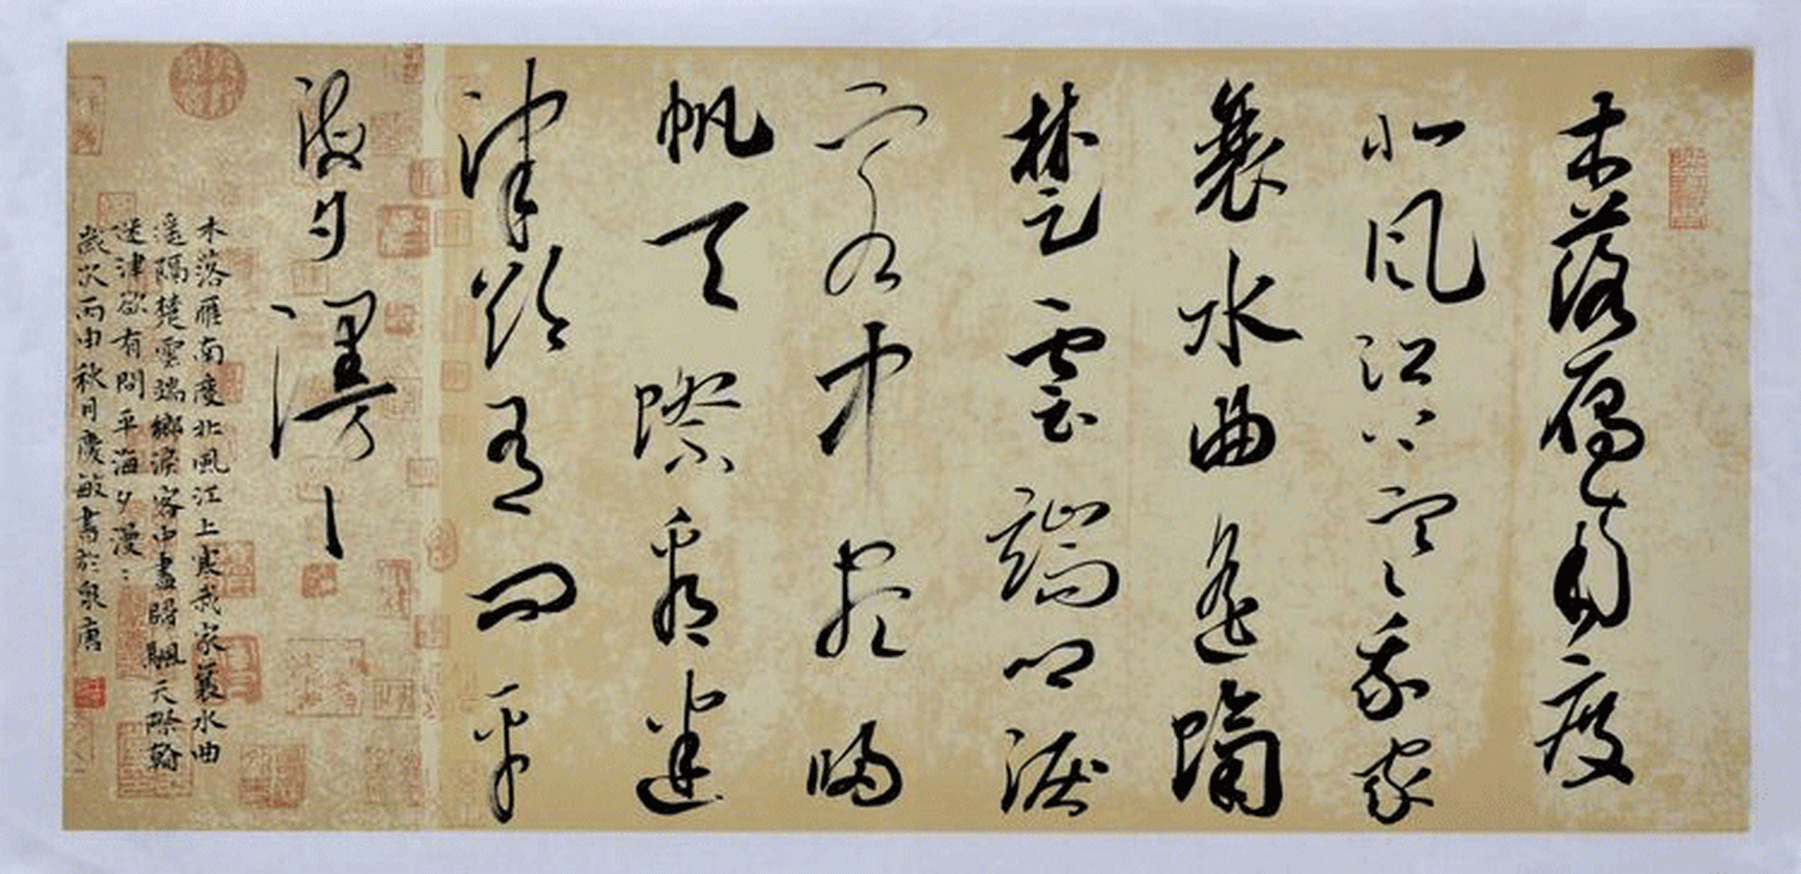 木落雁南度
北風江上寒我家
襄水曲遙隔
楚雲端鄉淚
客中盡歸
帆天際看迷
津欲有問平
海夕漫〻
木落雁南度北風江上寒我家襄水曲
遙隔楚雲端鄉淚客中盡歸颿天際看
迷津欲有問平海夕漫〻
歲次丙申秋月慶敏書於泉唐